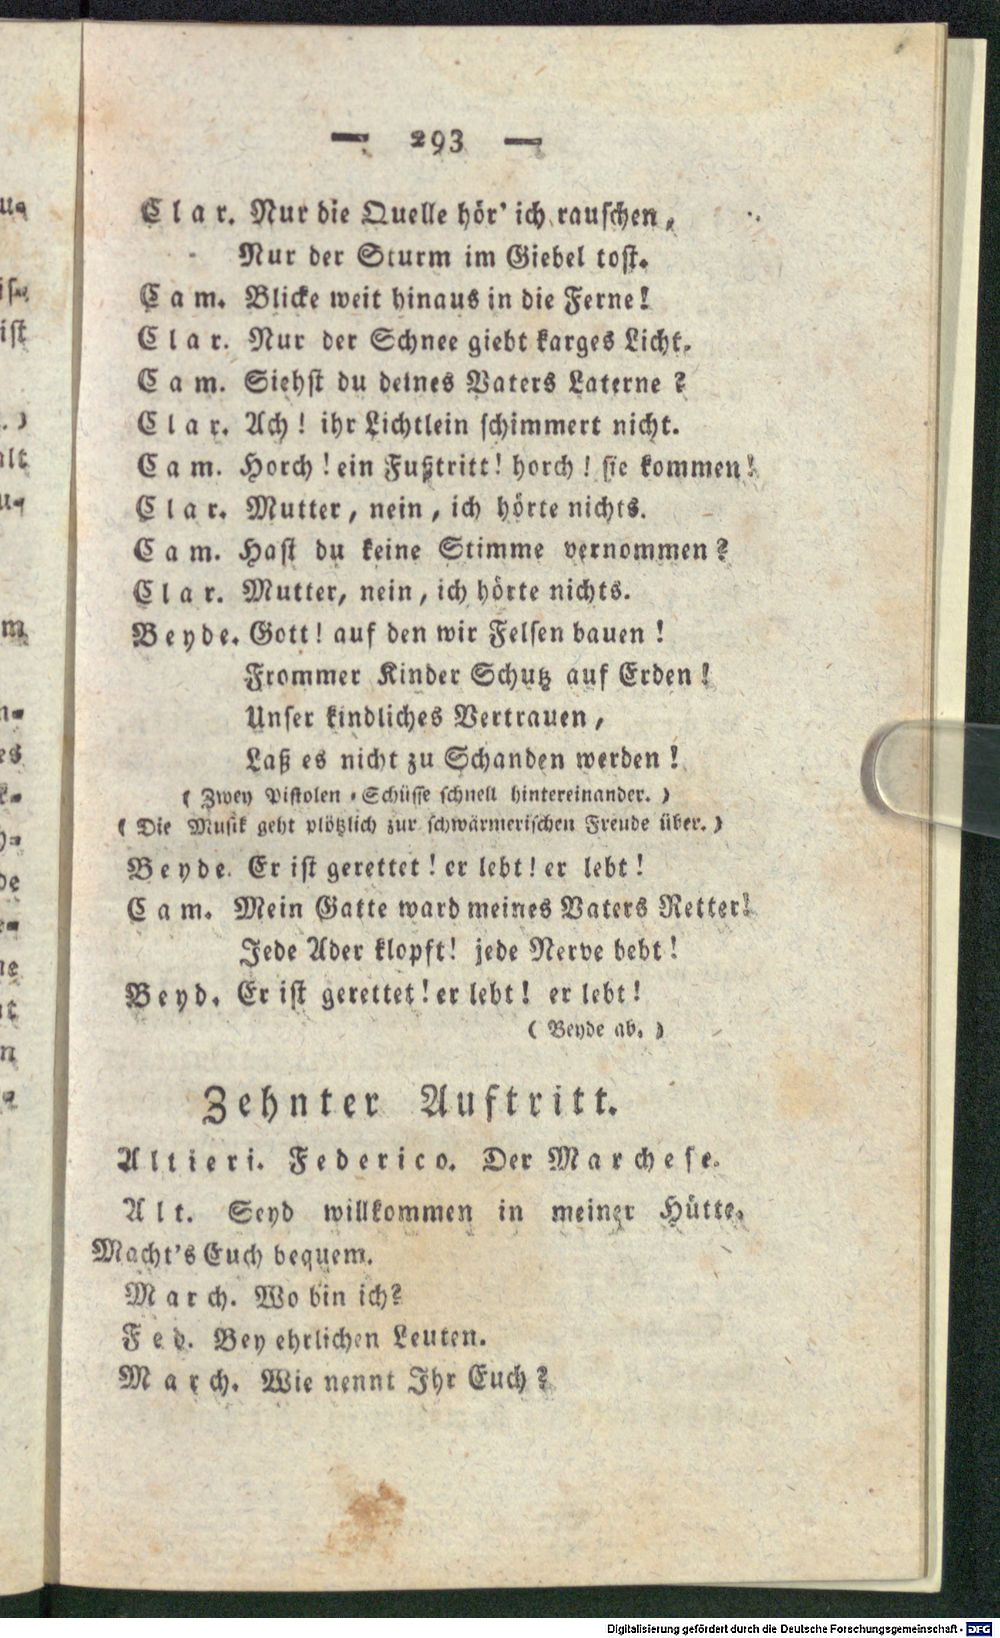 — 293 —
Clar. Nur die Quelle hör' ich rauschen,
Nur der Sturm im Giebel tost.
Cam. Blicke weit hinaus in die Ferne!
Clar. Nur der Schnee giebt karges Licht.
Cam. Siehst du deines Vaters Laterne?
Clar. Ach! ihr Lichtlein schimmert nicht.
Cam. Horch! ein Fußtritt! horch! sie kommen!
Clar. Mutter, nein, ich hörte nichts.
Cam. Hast du keine Stimme vernommen?
Clar. Mutter, nein, ich hörte nichts.
Beyde. Gott! auf den wir Felsen bauen!
Frommer Kinder Schutz auf Erden!
Unser kindliches Vertrauen,
Laß es nicht zu Schanden werden!
(Zwey Pistolen-Schüsse schnell hintereinander.)
(Die Musik geht plötzlich zur schwärmerischen Freude über.)
Beyde. Er ist gerettet! er lebt! er lebt!
Cam. Mein Gatte ward meines Vaters Retter!
Jede Ader klopft! jede Nerve bebt!
Beyd. Er ist gerettet! er lebt! er lebt!
(Beyde ab.)
Zehnter Auftritt.
Altieri. Federico. Der Marchese.
Alt. Seyd willkommen in meiner Hütte.
Macht's Euch bequem.
March. Wo bin ich?
Fed. Bey ehrlichen Leuten.
March. Wie nennt Ihr Euch?
Digitalisierung gefördert durch die Deutsche Forschungsgemeinschaft - DFG